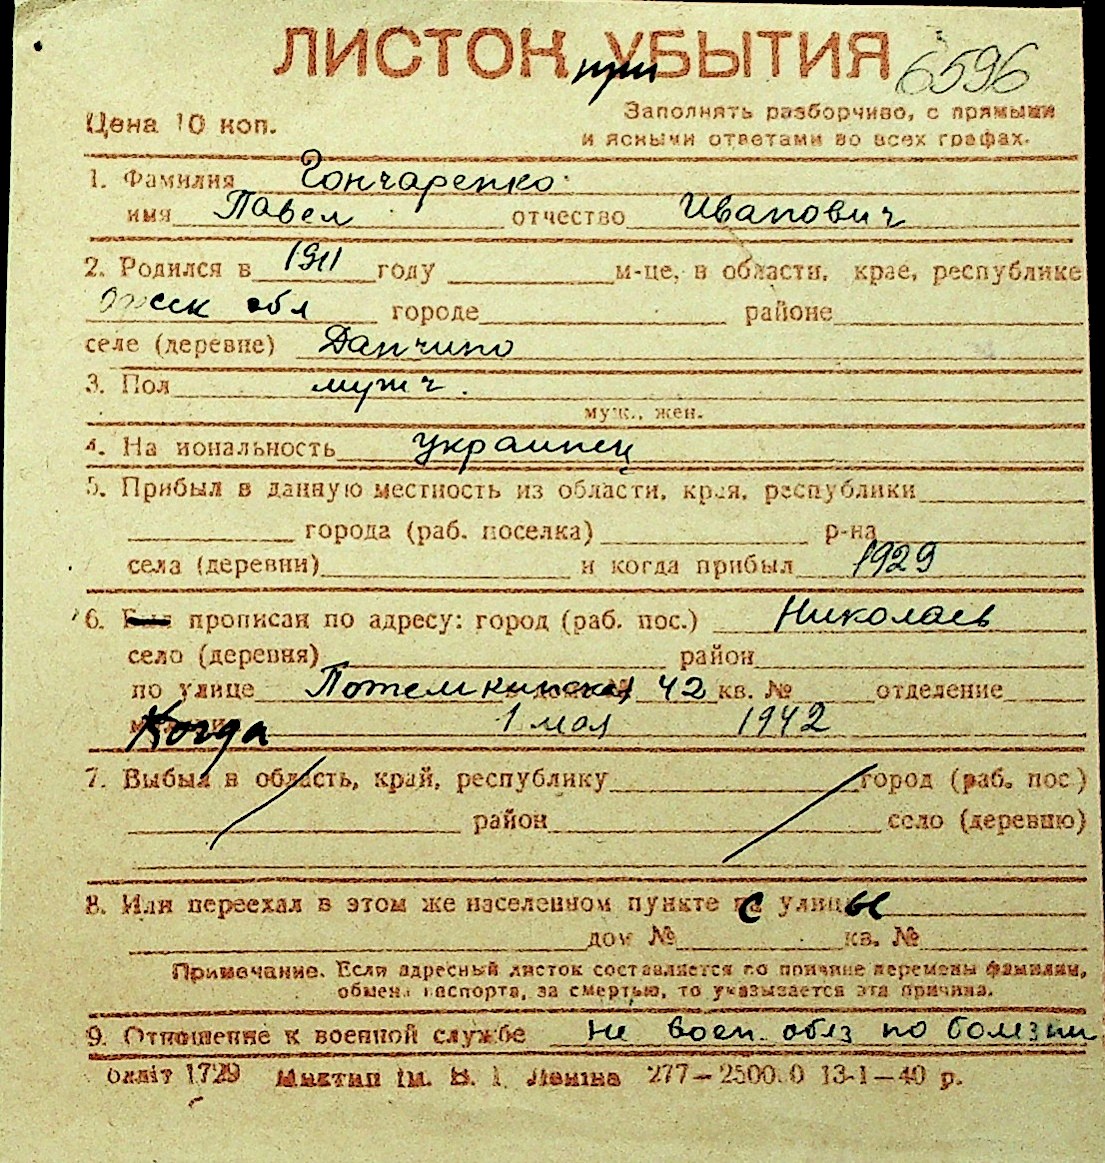 ЛИСТОК при УБЫТИЯ 6596
Цена 10 коп.
Заполнять разборчиво, с прямыми
и ясными ответами во всех графах.
1. Фамилия Гончаренко
имя Павел отчество Иванович
2. Родился в 1911 году м-це, в области, крае, республике
обл городе районе
селе (деревне) Данчино
3. Пол мужч.
муж., жен.
4. На иональность украинец
5. Прибыл в данную местность из области, края, республики
города (раб. поселка) р-на
села (деревни) и когда прибыл 1929
6. прописан по адресу: город (раб. пос.) Николаев
село (деревня) район
по улице Потемкинская 42 кв. № отделение
Когда 1 мая 1942
7. Выбыл в область, край, республику город (раб. пос.)
район село (деревню)
8. Или переехал в этом же населенном пункте с улицы
дом № кв. №
Примечание. Если адресный листок составляется по причине перемены фамилии,
обмена паспорта, за смертью, то указывается эта причина.
9. Отношение к военной службе не воен. обяз по болезни
блліт 1729 Миктип Ім. В. І. Леніна 277—2500.0 13-1—40 р.